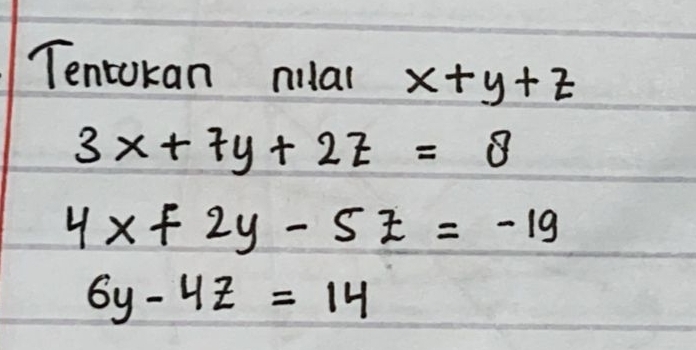 Tentukan nilai x+y+z
3x+7y+2z = 8
4x+2y-5z = -19
6y-4z = 14